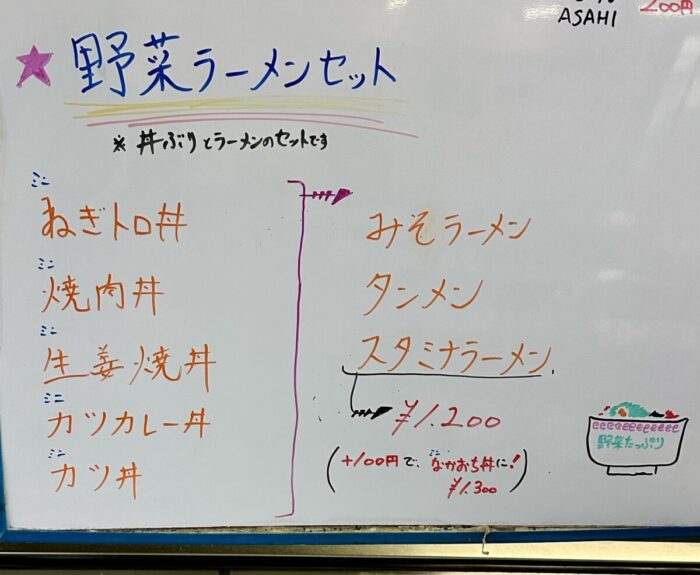 ASAHI
200円
★野菜ラーメンセット
※丼ぶりとラーメンのセットです
ミニ
ねぎトロ丼
ミニ
焼肉丼
ミニ
生姜焼丼
ミニ
カツカレー丼
ミニ
カツ丼
みそラーメン
タンメン
スタミナラーメン
¥1.200
(+100円で、ミニなかおち丼に!
¥1.300)
野菜たっぷり